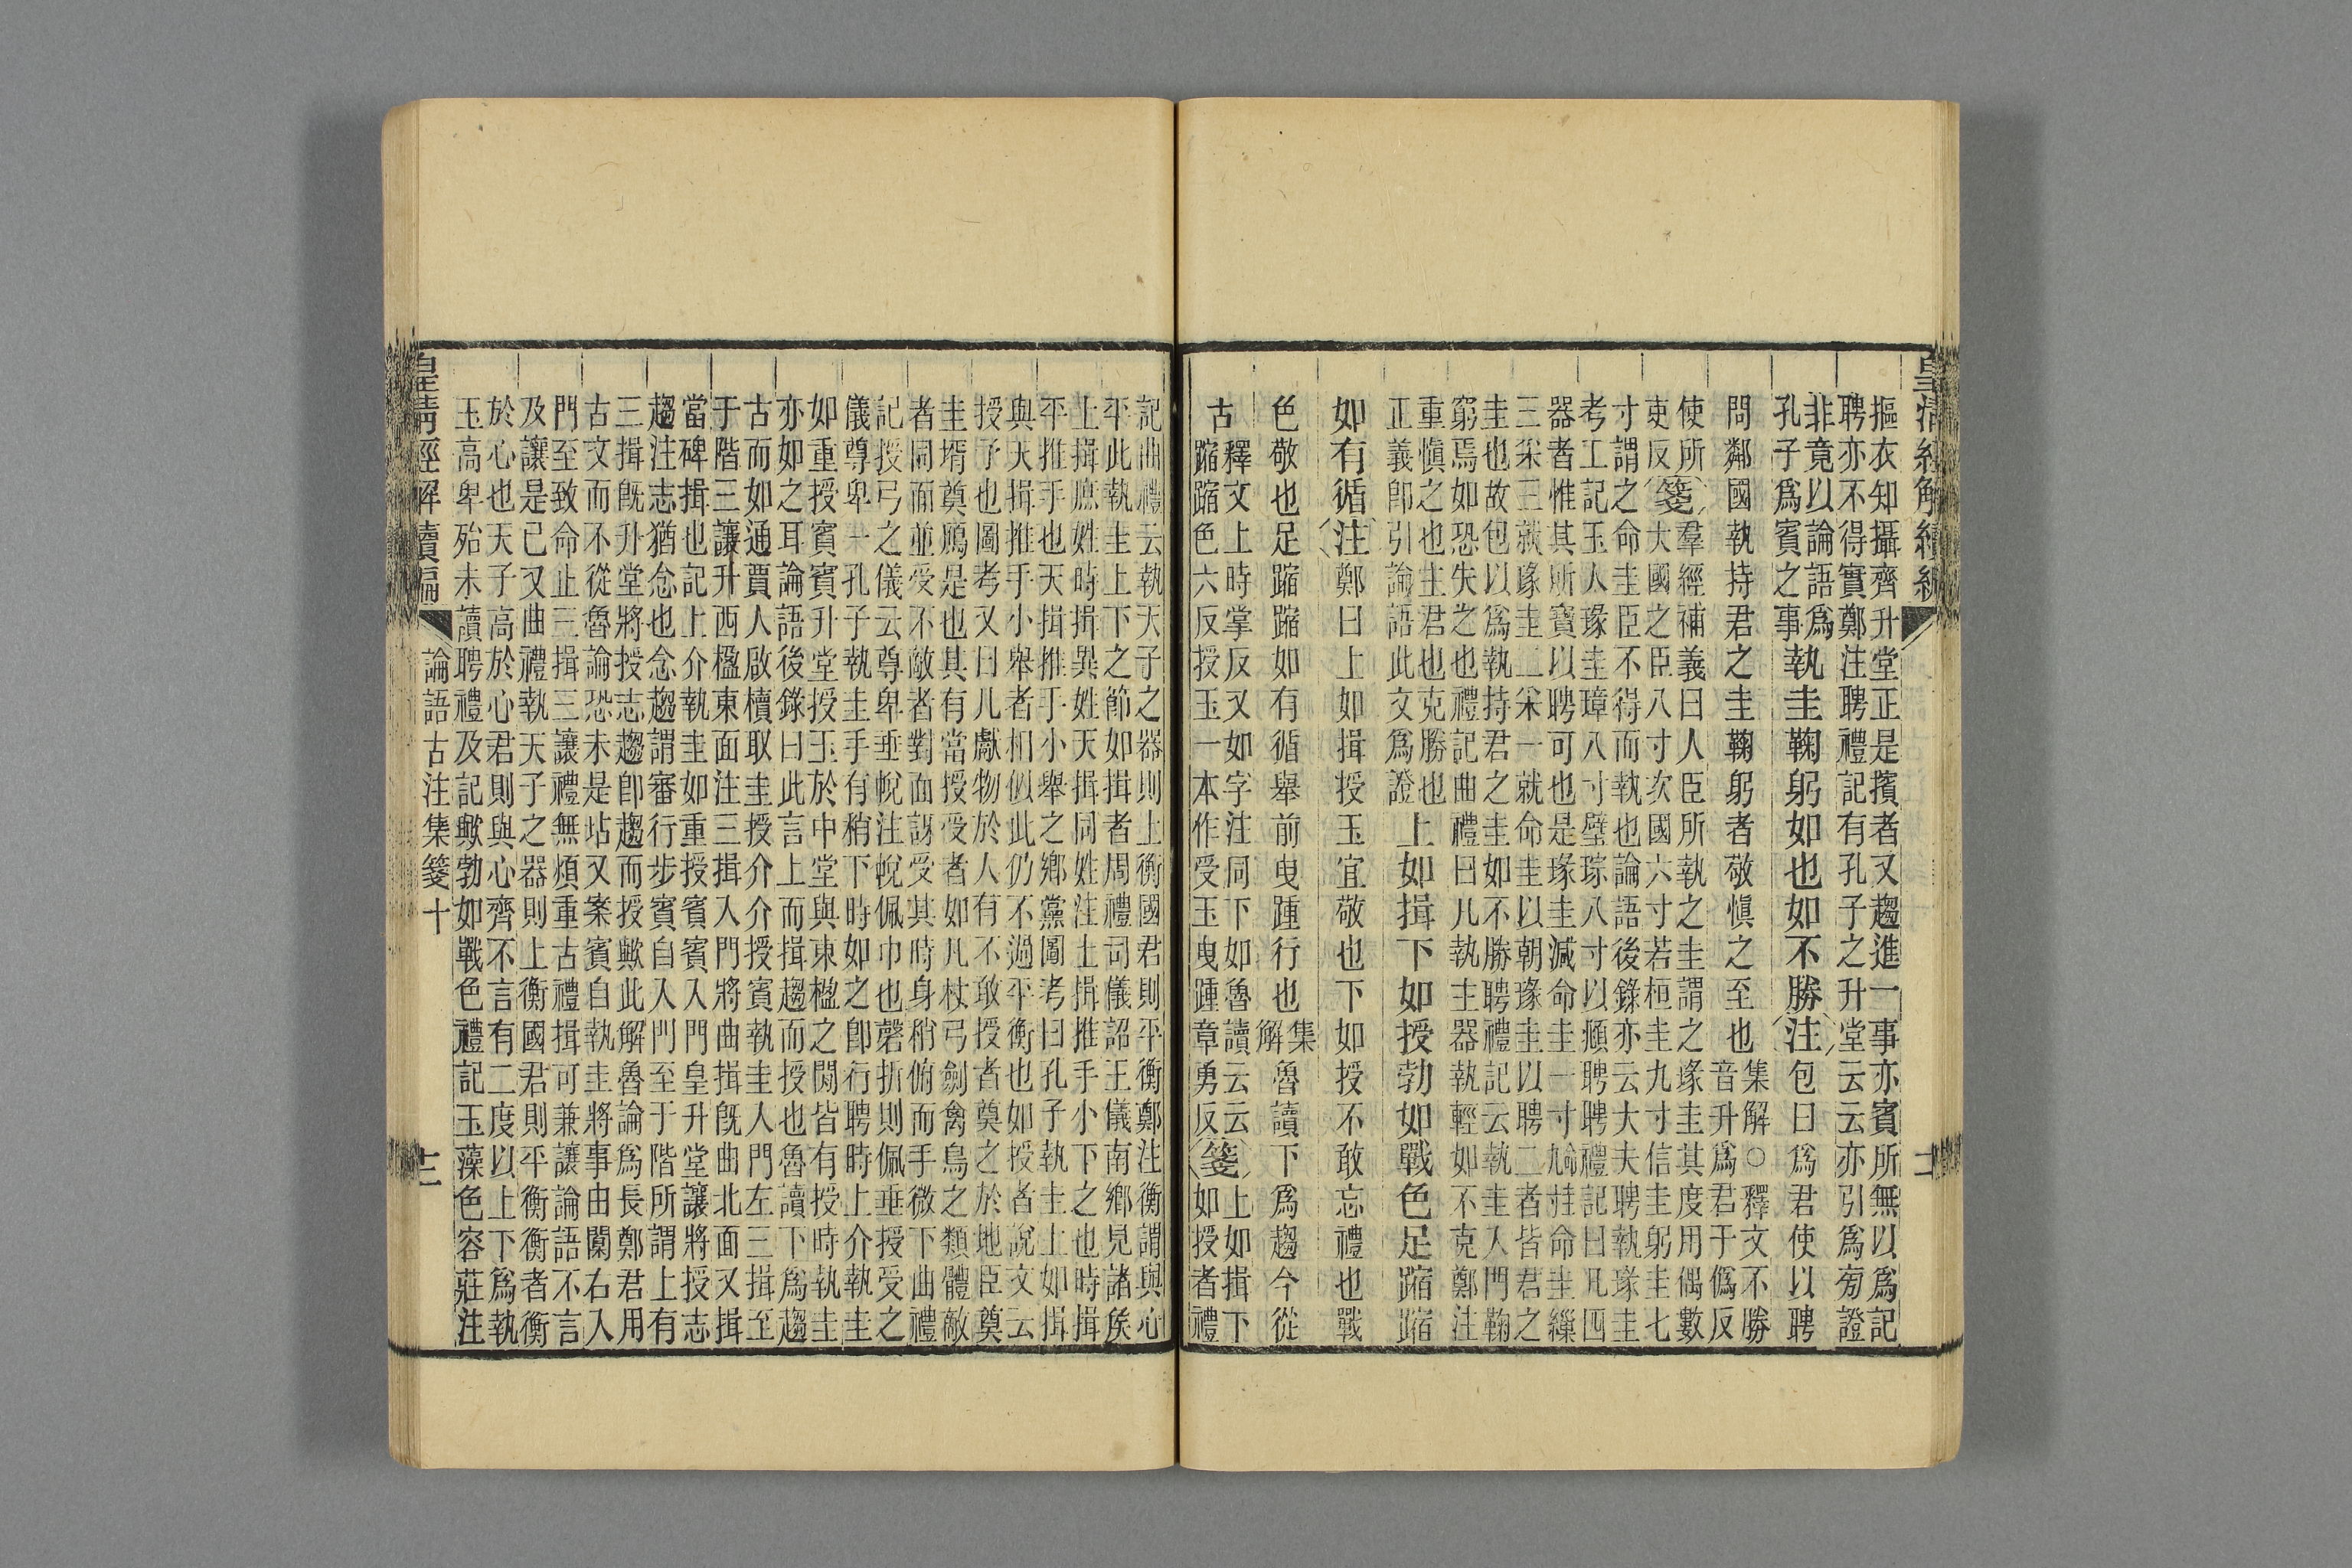 皇清經解續編
摳衣知攝齊升堂正是擯者又趨進一事亦賓所無以爲記
聘亦不得實鄭注聘禮記有孔子之升堂云云亦引爲旁證
非竟以論語爲
孔子爲賓之事
執圭鞠躬如也如不勝注包曰爲君使以聘
問鄰國執持君之圭鞠躬者敬愼之至也
集解○釋文不勝
音升爲君于僞反
使所羣經補義曰人臣所執之圭謂之瑑圭其度用偶數
吏反箋大國之臣八寸次國六寸若桓圭九寸信圭躬圭七
寸謂之命圭臣不得而執也論語後錄亦云大夫聘執瑑圭
考工記玉人瑑圭璋八寸璧琮八寸以頫聘聘禮記曰凡四
器者惟其所寶以聘可也是瑑圭減命圭一寸尯挂命圭繅
三采三就瑑圭二采一就命圭以朝瑑圭以聘二者皆君之
圭也故包以爲執持君之圭如不勝聘禮記云執圭入門鞠
窮焉如恐失之也禮記曲禮曰凡執主器執輕如不克鄭注
重愼之也主君也克勝也
正義卽引論語此文爲證
上如揖下如授勃如戰色足蹜蹜
如有循注鄭曰上如揖授玉宜敬也下如授不敢忘禮也戰
色敬也足蹜蹜如有循舉前曳踵行也
集
解
魯讀下爲趨今從
古
釋文上時掌反又如字注同下如魯讀云云箋上如揖下
蹜蹜色六反授玉一本作受玉曳踵章勇反如授者禮
記曲禮云執天子之器則上衡國君則平衡鄭注衡謂與心
平此執圭上下之節如揖者周禮司儀詔王儀南鄉見諸矦
上揖庶姓時揖異姓天揖同姓注土揖推手小下之也時揖
平推手也天揖推手小舉之鄉黨圖考曰孔子執圭上如揖
與天揖推手小舉者相似此仍不過平衡也如授者說文云
授予也圖考又曰凡獻物於人有不敢授者奠之於地臣奠
圭壻奠鴈是也其有當授受者如凡杖弓劍禽鳥之類體敵
者同面並受不敵者對面訝受其時身稍俯而手微下曲禮
記授弓之儀云尊卑垂帨注帨佩巾也磬折則佩垂授受之
儀尊卑一孔子執圭手有稍下時如之卽行聘時上介執圭
如重授賓賓升堂授玉於中堂與東楹之閒皆有授時執圭
亦如之耳論語後錄曰此言上而揖趨而授也魯讀下爲趨
古而如通賈人啟櫝取圭授介介授賓執圭入門左三揖至
于階三讓升西楹東面注三揖入門將曲揖旣曲北面又揖
當碑揖也記上介執圭如重授賓賓入門皇升堂讓將授志
趨注志猶念也念趨謂審行步賓自入門至于階所謂上有
三揖旣升堂將授志趨卽趨而授歟此解魯論爲長鄭君用
古文而不從魯論恐未是坫又案賓自執圭將事由闑右入
門至致命止三揖三讓禮無煩重古禮揖可兼讓論語不言
及讓是已又曲禮執天子之器則上衡國君則平衡衡者衡
於心也天子高於心君則與心齊不言有二度以上下爲執
玉高卑殆未讀聘禮及記歟勃如戰色禮記玉藻色容莊注
皇淸經解續編
論語古注集箋十
十二